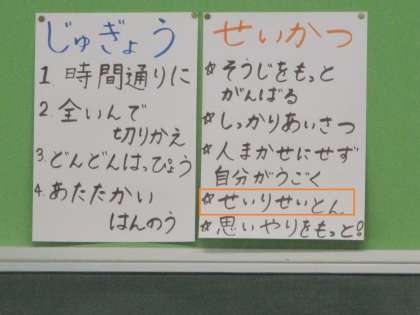 じゅぎょう
1 時間通りに
2. 全いんで
切りかえ
3. どんどんはっぴょう
4. あたたかい
はんのう
せいかつ
☆そうじをもっと
がんばる
☆しっかりあいさつ
☆人まかせにせず
自分がうごく
☆せいりせいとん。
☆思いやりをもっと!